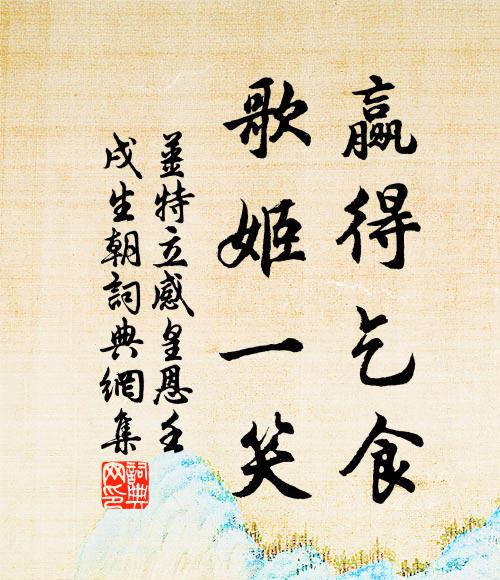 贏得乞食
歌姬一笑
姜特立感皇恩壬
戌生朝詞典網集
詞典
网印